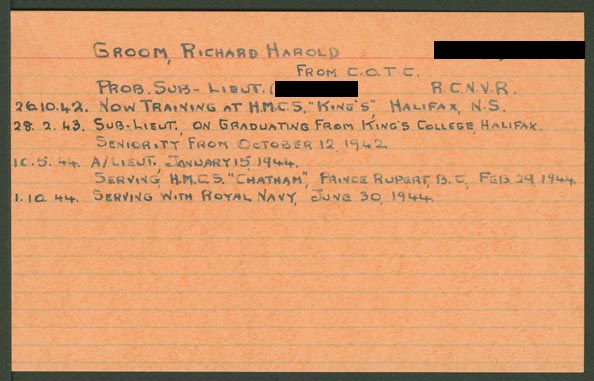 GROOM, RICHARD HAROLD
FROM C.O.T.C.
PROB. SUB-LIEUT. ( R.C.N.V.R.
26.10.42. NOW TRAINING AT H.M.C.S. "KING'S", HALIFAX, N.S.
28. 2. 43. SUB-LIEUT., ON GRADUATING FROM KING'S COLLEGE, HALIFAX.
SENIORITY FROM OCTOBER 12, 1942.
10. 5. 44. A/LIEUT., JANUARY 15, 1944.
SERVING, H.M.C.S. "CHATHAM", PRINCE RUPERT, B.C., FEB. 29, 1944.
1. 10. 44. SERVING WITH ROYAL NAVY, JUNE 30, 1944.